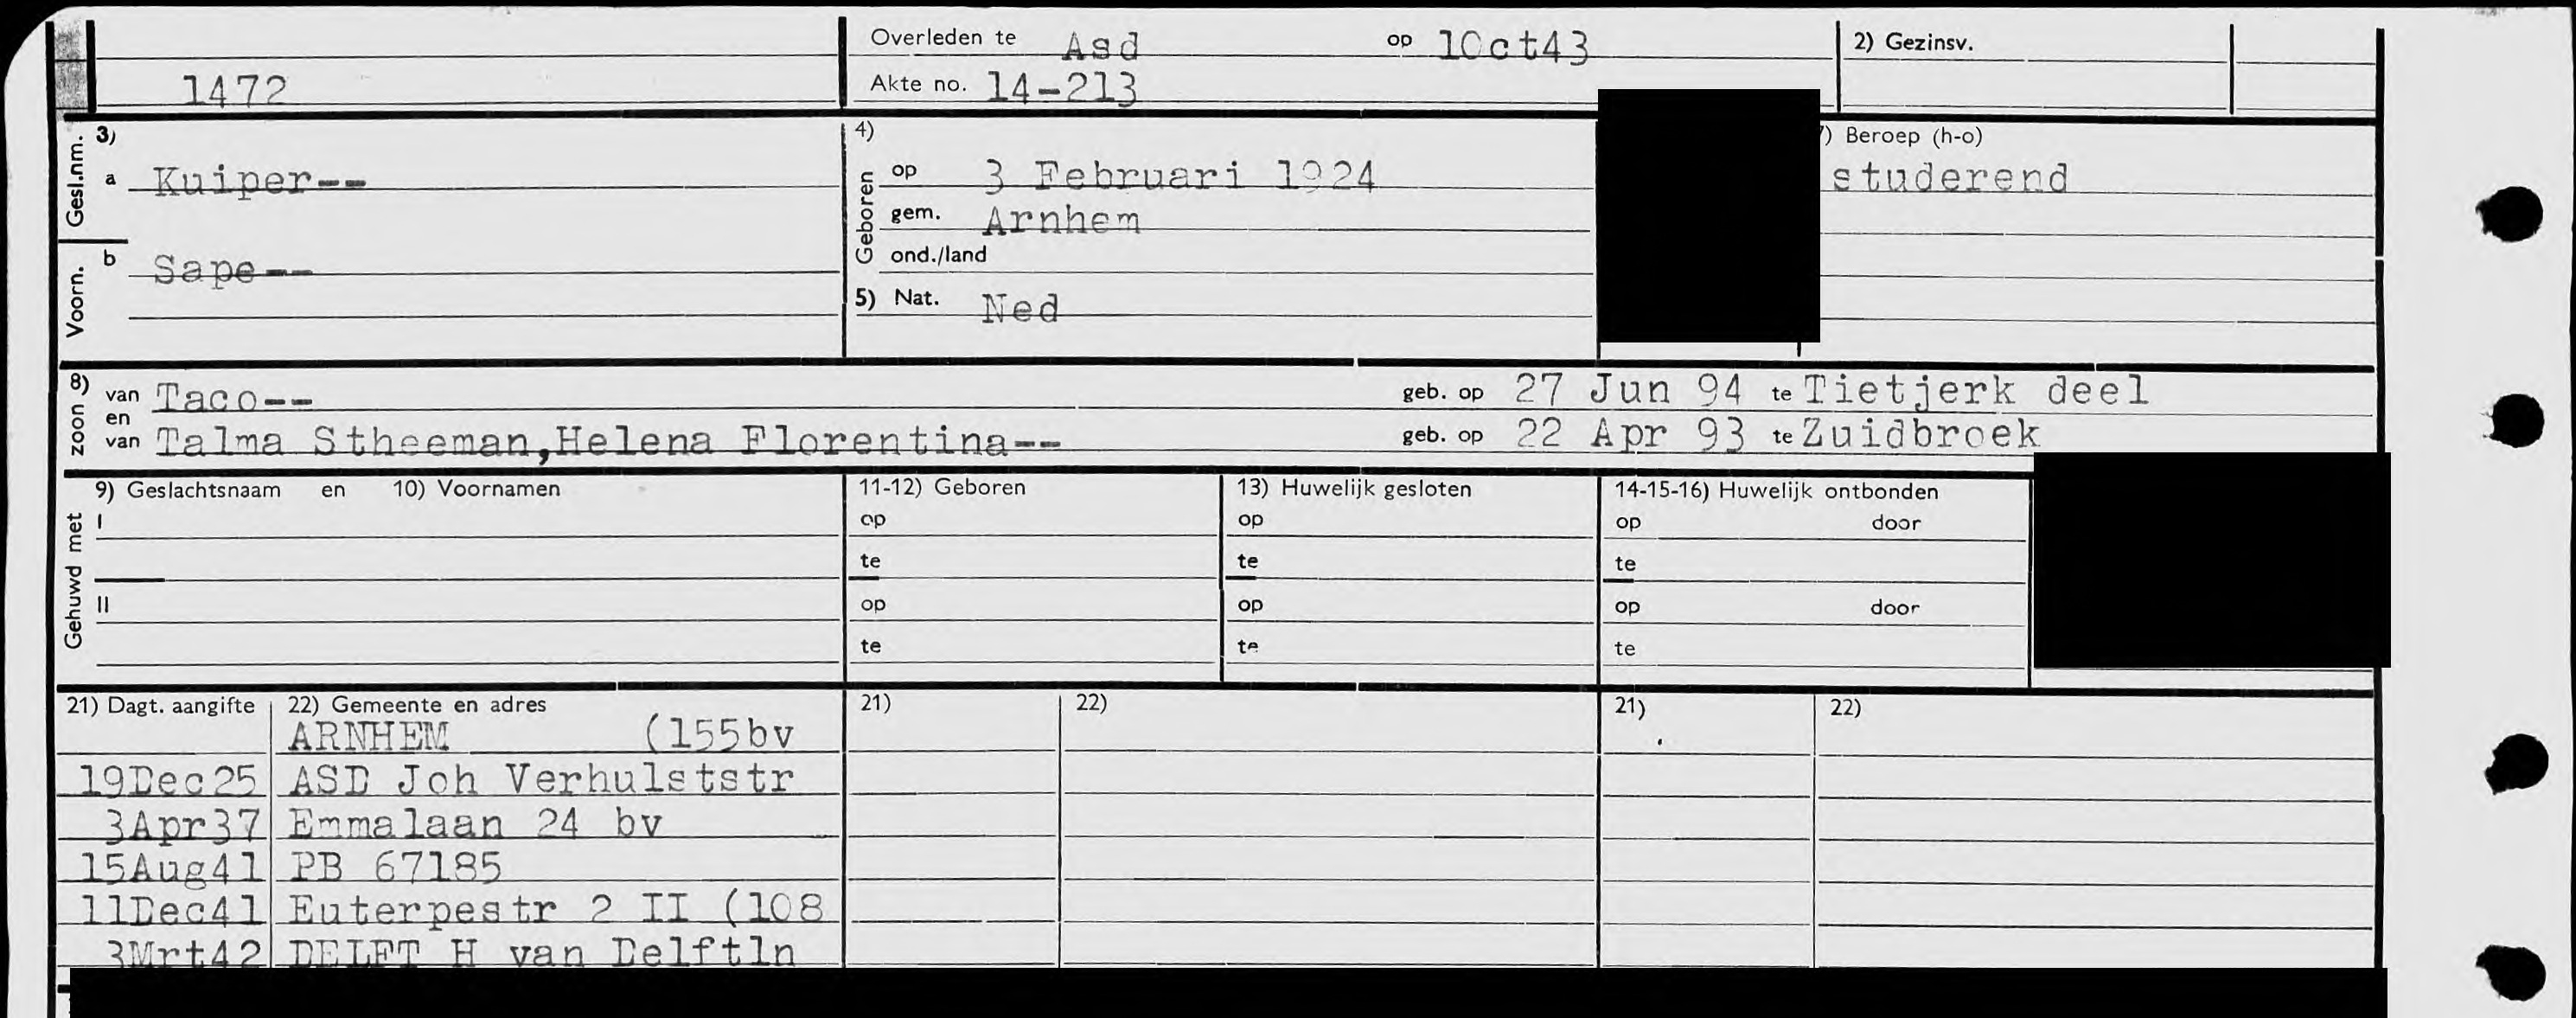 Overleden te Asd op 1Oct43 2) Gezinsv.
1472 Akte no. 14-213
Gesl.nm. 3) a Kuiper--
Voorn. b Sape--
4) Geboren op 3 Februari 1924
gem. Arnhem
ond./land
5) Nat. Ned
) Beroep (h-o)
studerend
8) zoon van Taco-- geb. op 27 Jun 94 te Tietjerk deel
en van Talma Stheeman,Helena Florentina-- geb. op 22 Apr 93 te Zuidbroek
Gehuwd met
9) Geslachtsnaam en 10) Voornamen 11-12) Geboren 13) Huwelijk gesloten 14-15-16) Huwelijk ontbonden
I op op op door
te te te
II op op op door
te te te
21) Dagt. aangifte 22) Gemeente en adres 21) 22) 21) 22)
ARNHEM (155bv
19Dec25 ASD Joh Verhulststr
3Apr37 Emmalaan 24 bv
15Aug41 PB 67185
11Dec41 Euterpestr 2 II (108
3Mrt42 DELFT H van Delftln